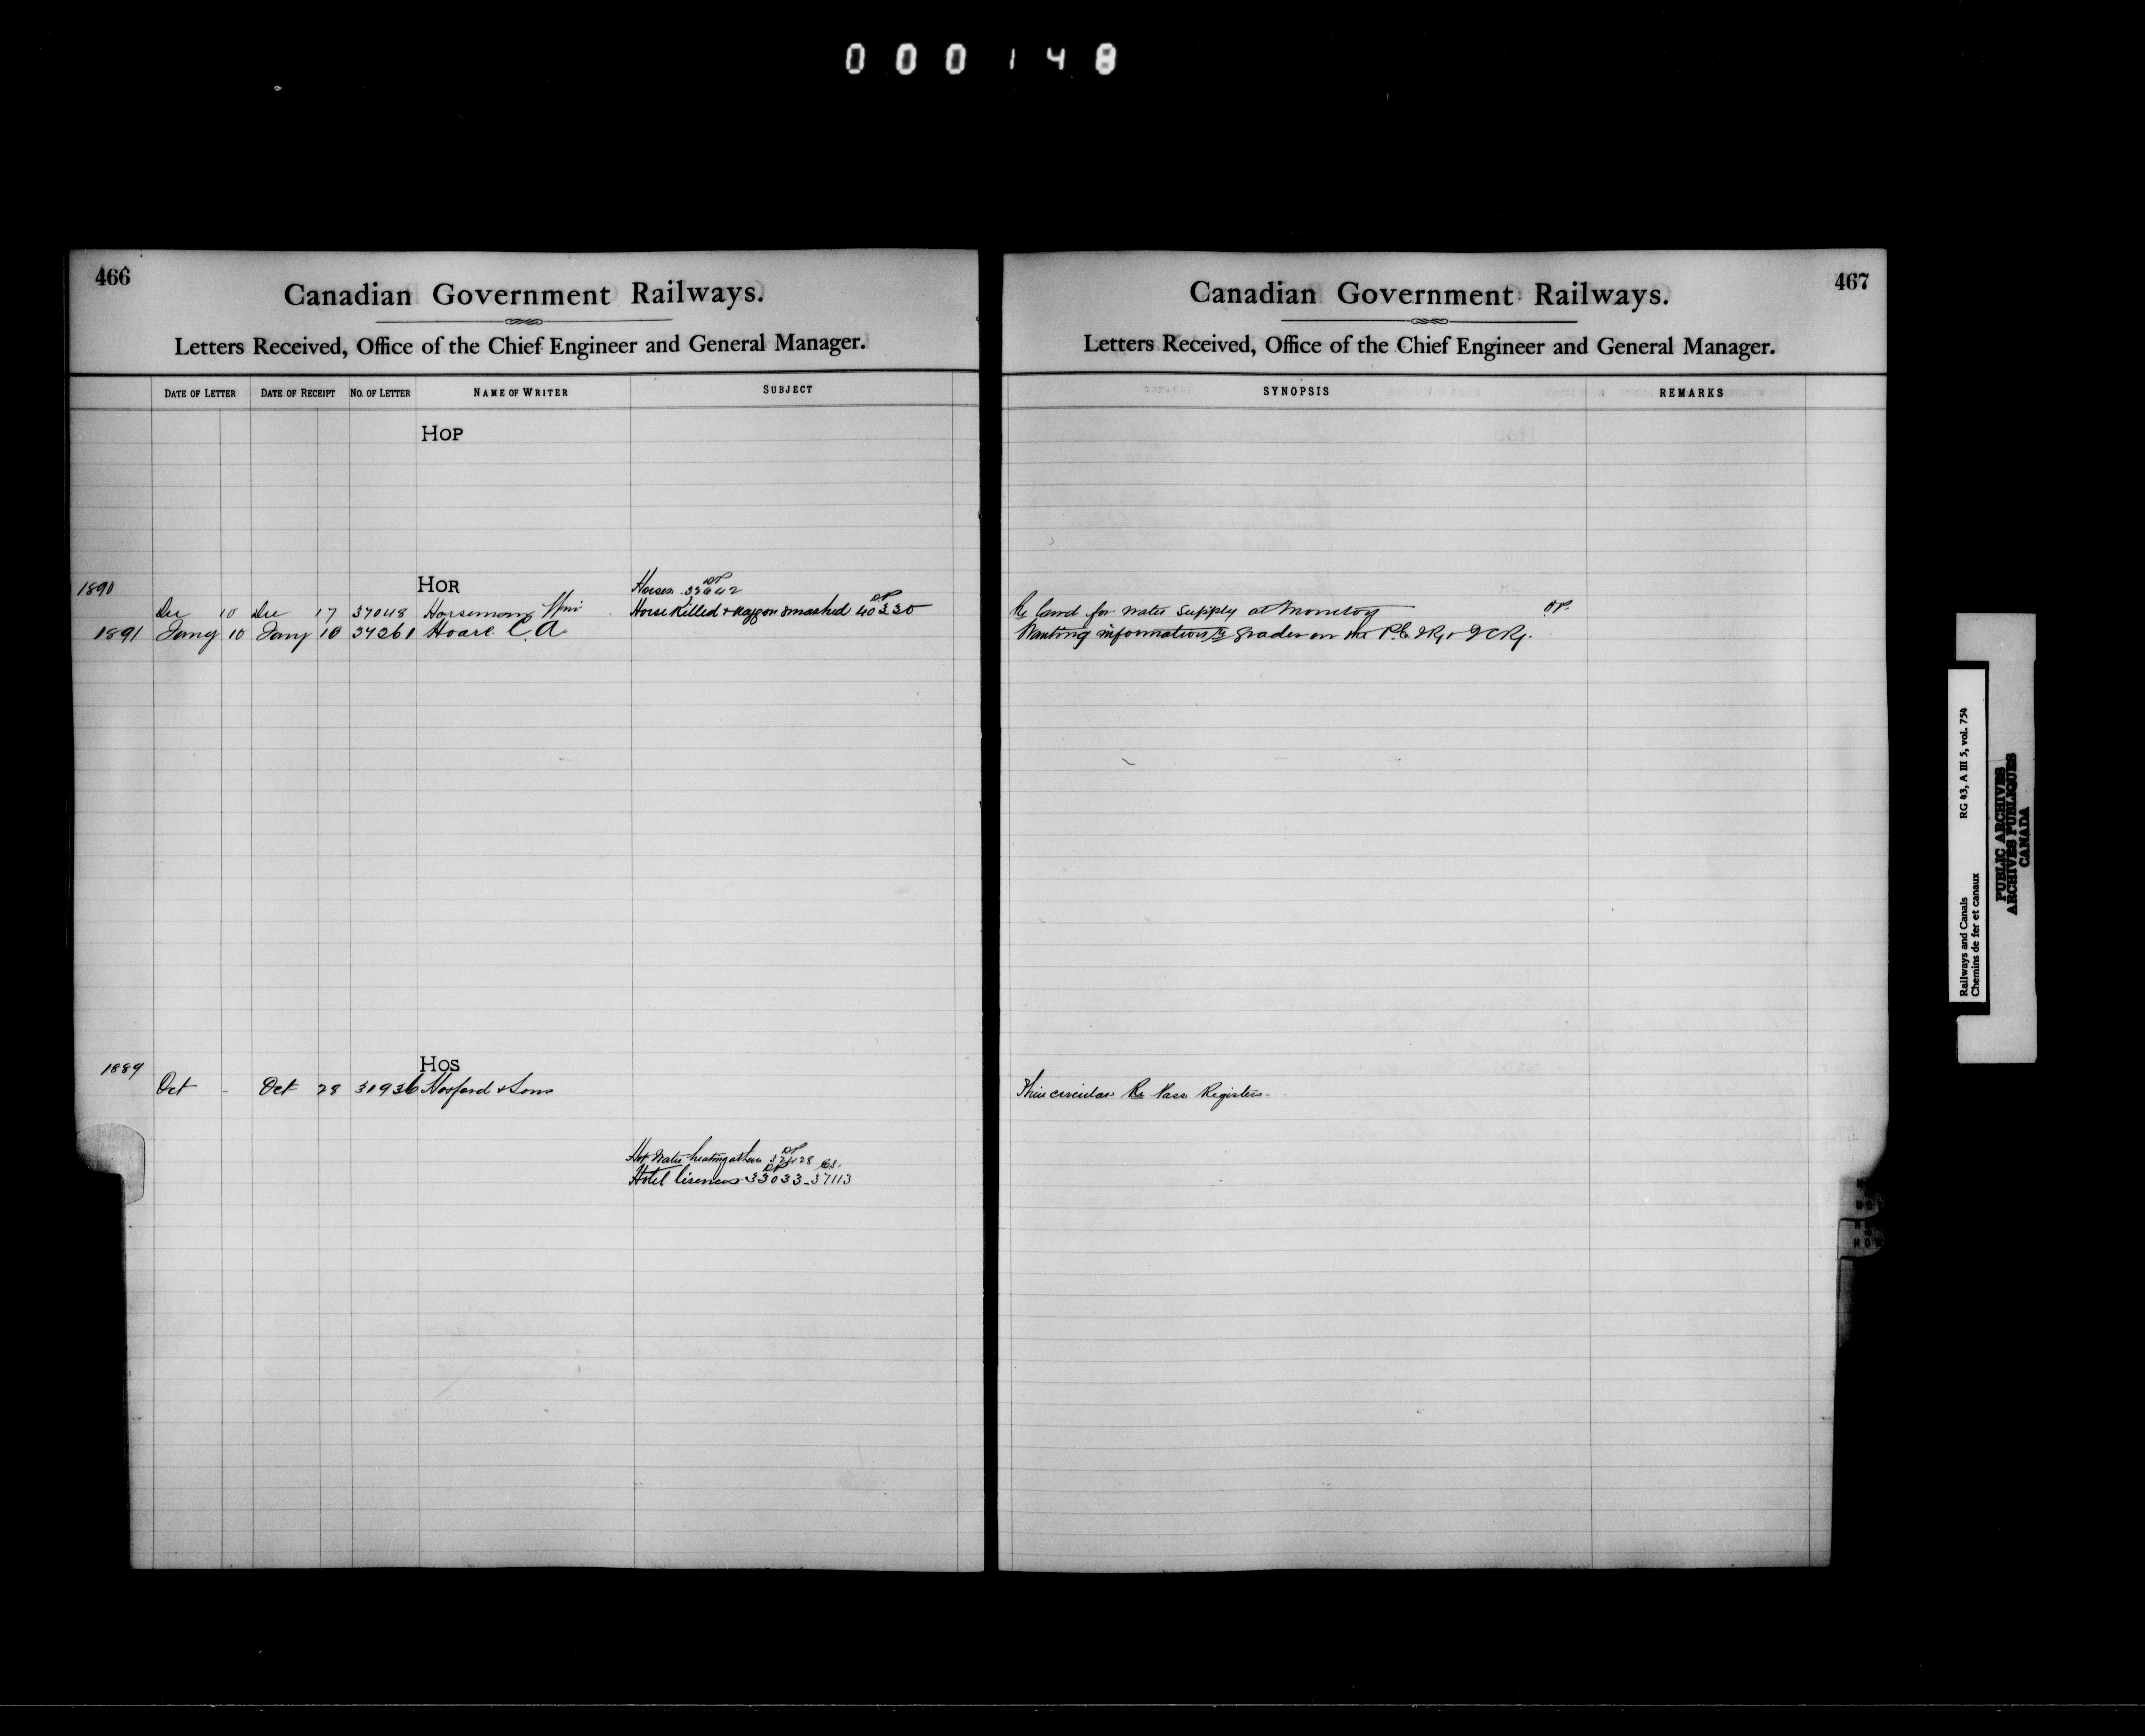 000148
466
Canadian Government Railways.
Letters Received, Office of the Chief Engineer and General Manager.
DATE OF LETTER DATE OF RECEIPT NO. OF LETTER NAME OF WRITER SUBJECT
HOP
1890 HOR Horses 33642 DP
Dec 10 Dec 17 37048 Horseman Wm Horse Killed + waggon smashed 40330 DP
1891 Jany 10 Jany 10 34261 Hoare C. A.
1889 HOS
Oct - Oct 28 31936 Hosford & Sons
Hot Water heating 37428 DP
Hotel licences 33033 - 37113 DP
467
Canadian Government Railways.
Letters Received, Office of the Chief Engineer and General Manager.
SYNOPSIS REMARKS
Re land for water supply at DP.
Wanting information re grades on the P.E.I Ry & I C Ry.
circular Re Pass Registers-
HOW
Railways and Canals RG 43, A III 5, vol. 754
Chemins de fer et canaux
PUBLIC ARCHIVES
ARCHIVES PUBLIQUES
CANADA